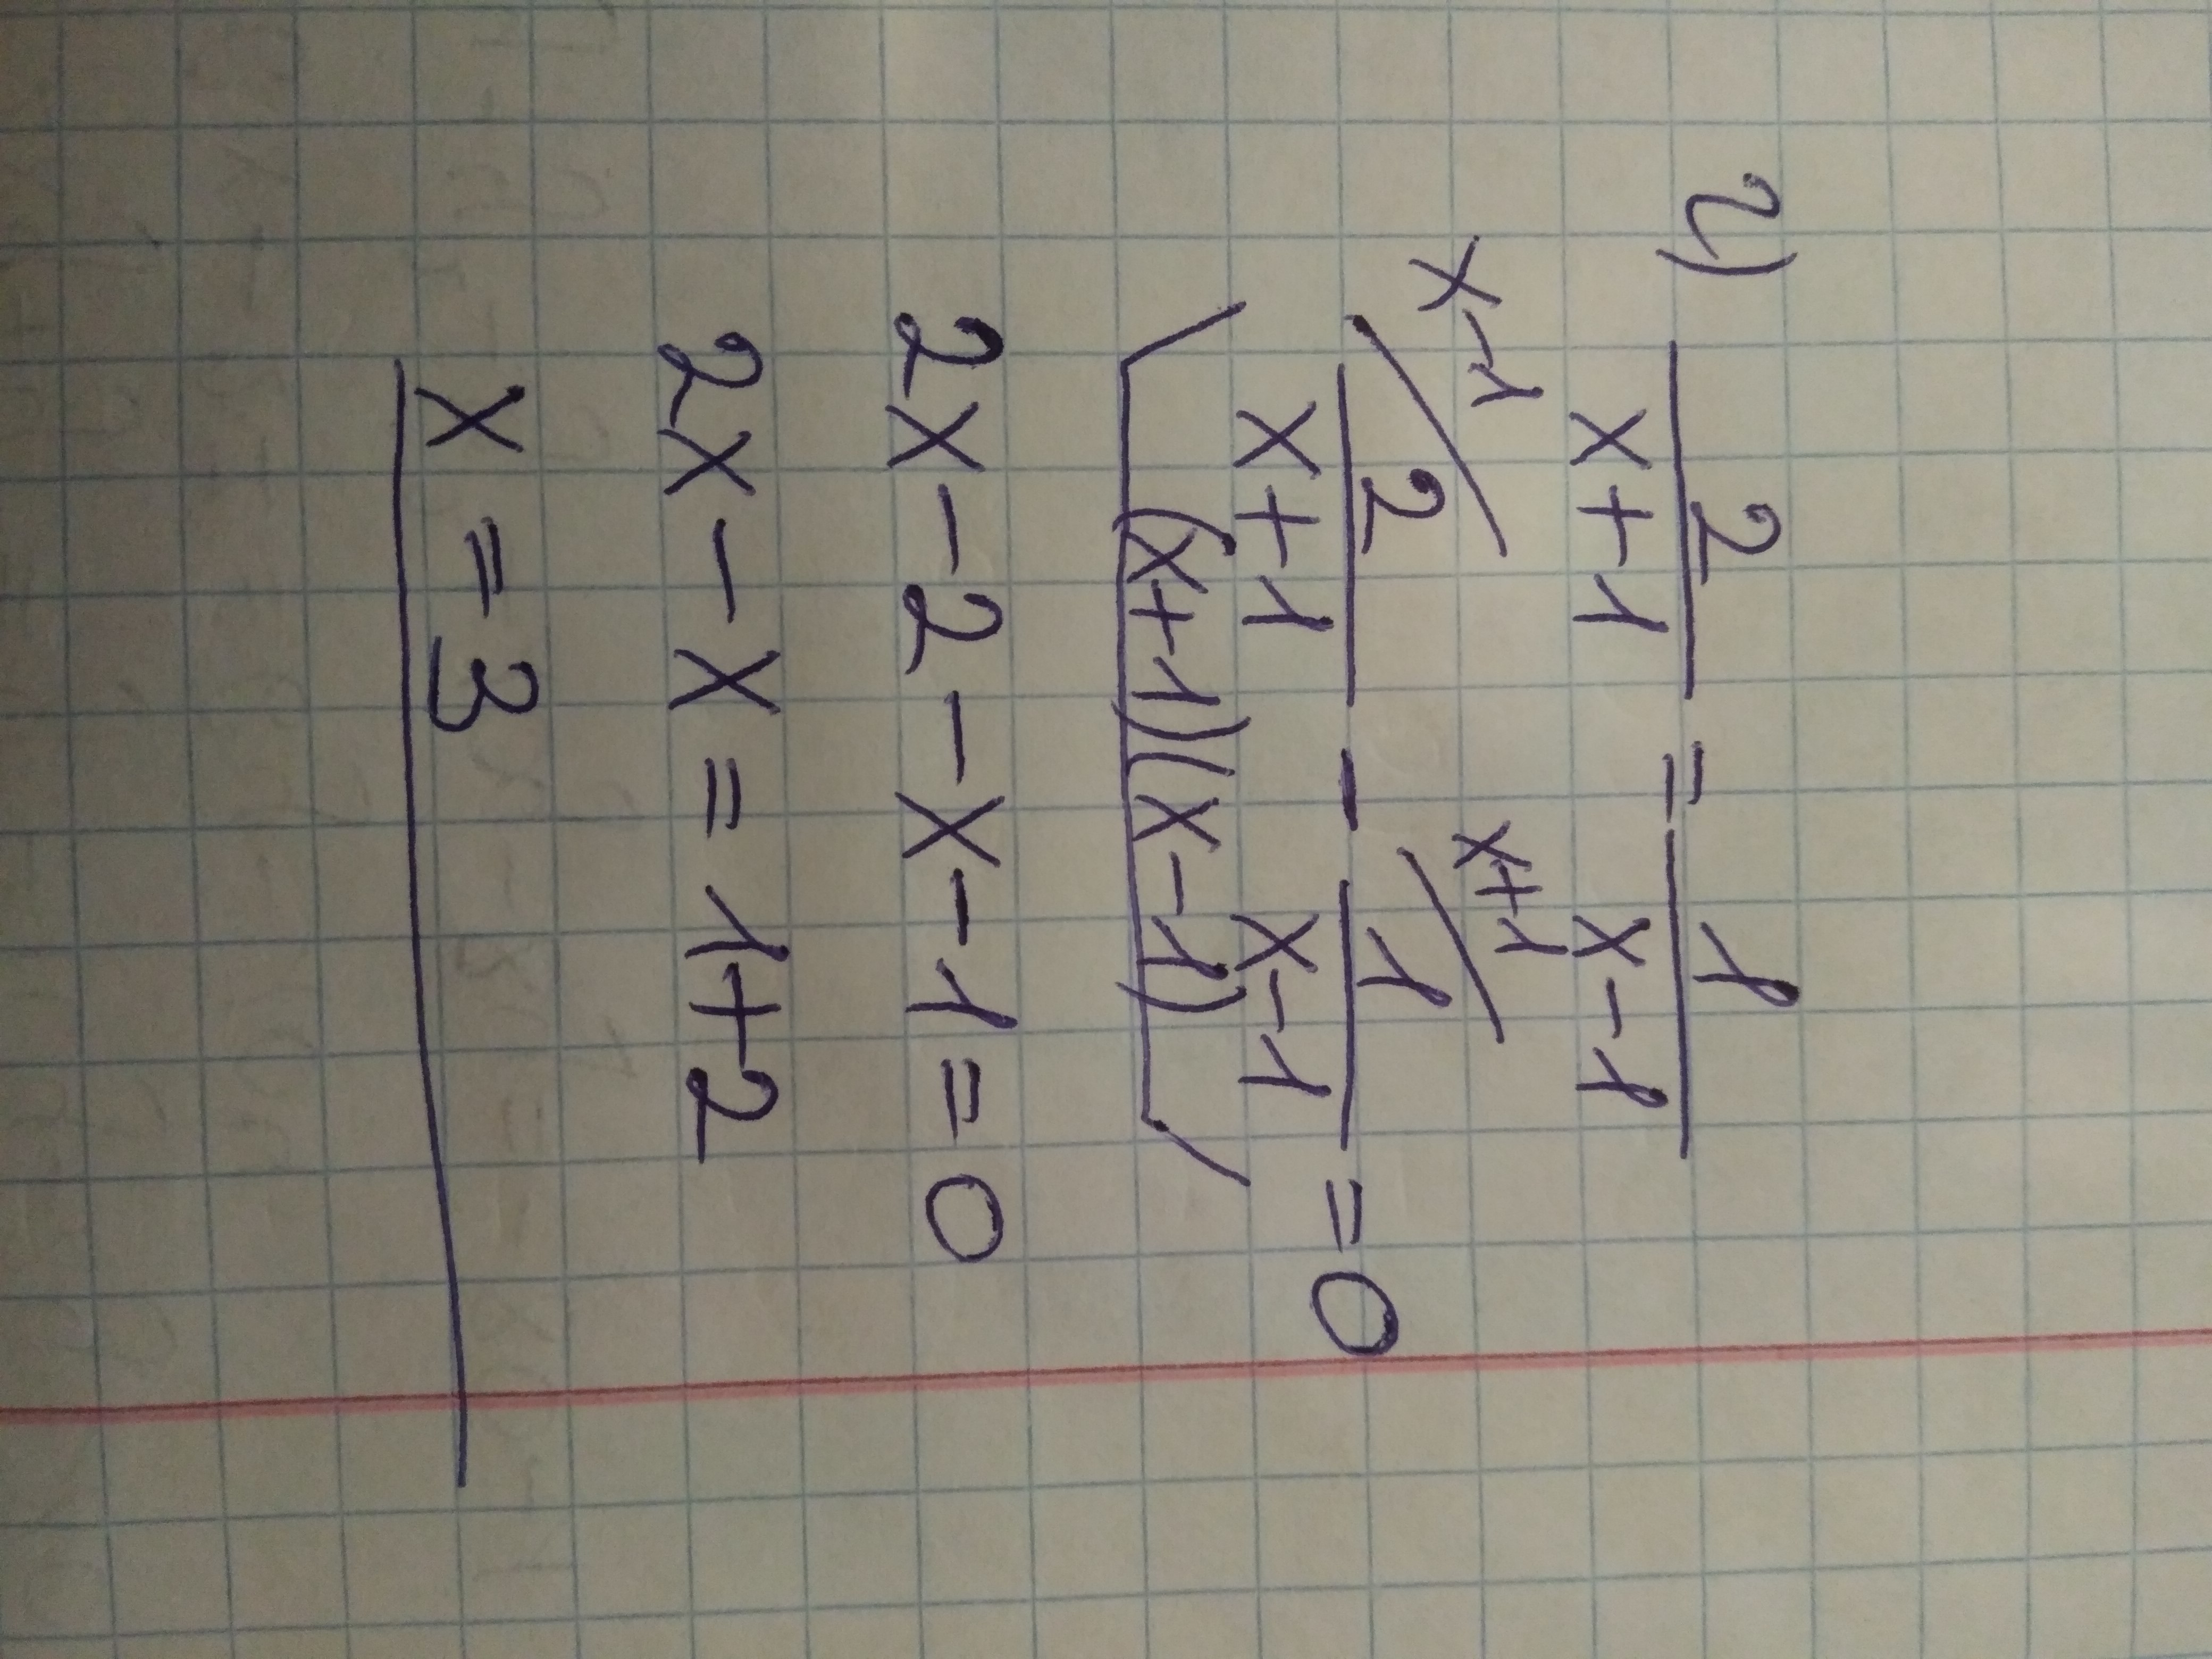 г) 2/(x+1) = 1/(x-1)
x-1 x+1
2/(x+1) - 1/(x-1) = 0
(x+1)(x-1)
2x-2-x-1=0
2x-x=1+2
x=3